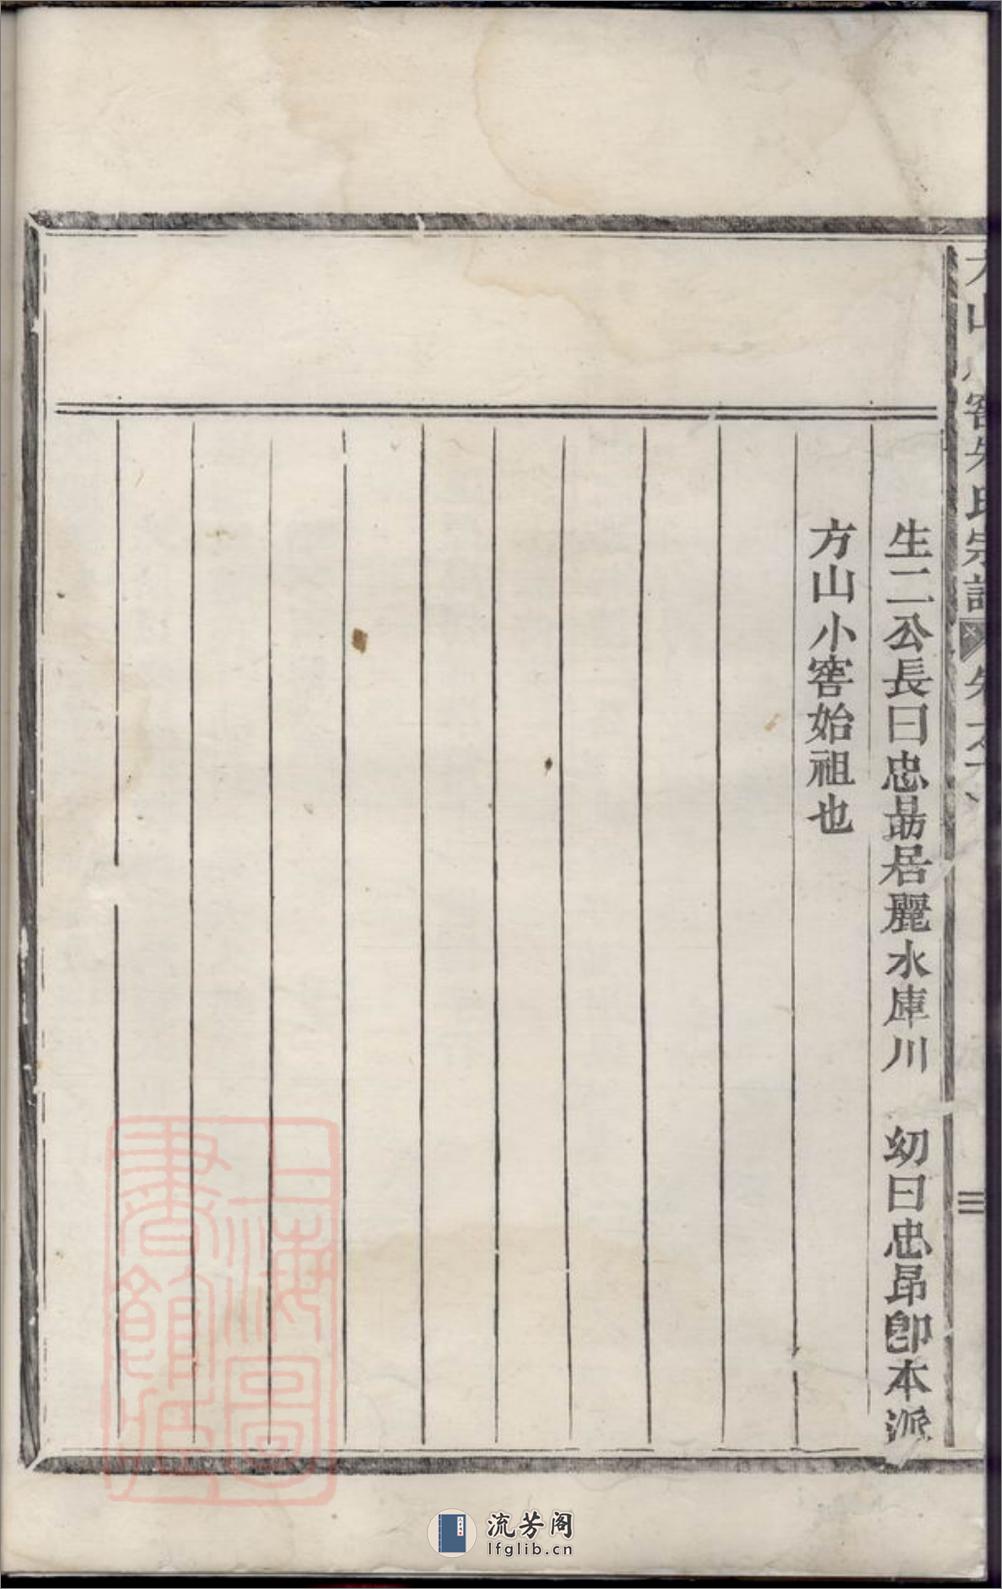 山
窖朱氏宗譜
生二公長曰忠勗居麗水庫川 幼曰忠昂卽本派
方山小窖始祖也
三
上海圖
書館藏
流芳阁
lfglib.cn